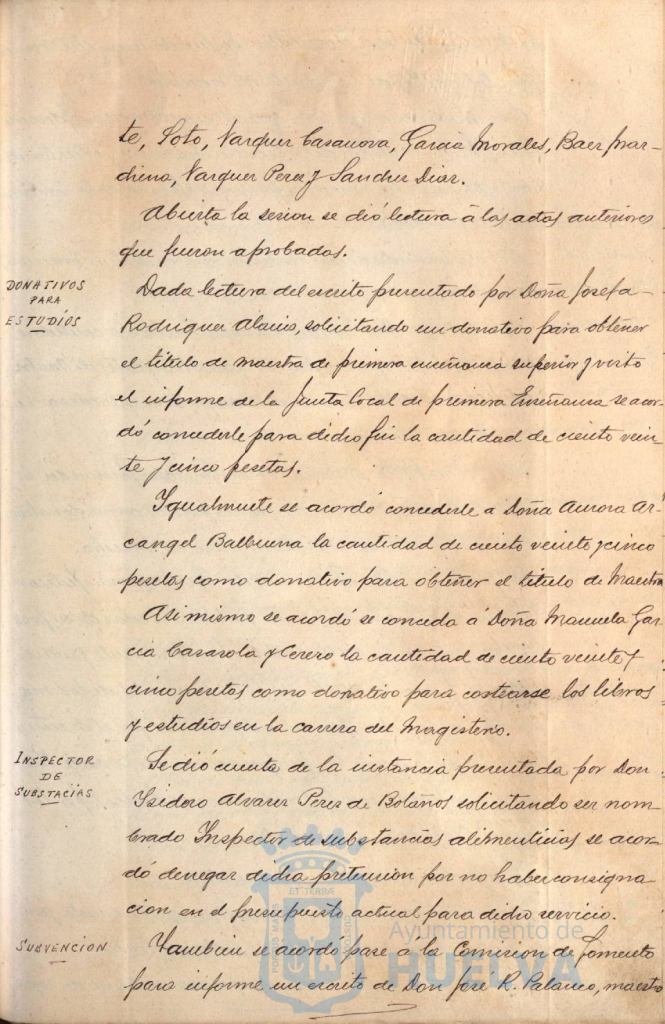 te, Soto, Varquer Casanova, Garcia Morales, Baer Mar-
chena, Varquer Perez y Sancher Diar.
Abierta la sesion se dió lectura á las actas anteriores
que fueron aprobadas.
DONATIVOS
PARA
ESTUDIOS
Dada lectura del escrito presentado por Doña Josefa
Rodriguer Alanis, solicitando un donativo para obtener
el titulo de maestra de primera enseñanza superior y visto
el informe de la Junta local de primera Enseñanza se acor-
dó concederle para dicho fin la cantidad de ciento vein-
te y cinco pesetas.
Igualmente se acordó concederle a Doña Aurora Ar-
cangel Balbuena la cantidad de ciento veinte y cinco
pesetas como donativo para obtener el titulo de Maestra
Asi mismo se acordó se conceda á Doña Manuela Gar-
cia Casarola y Cerero la cantidad de ciento veinte y
cinco pesetas como donativo para costearse los libros
y estudios en la carrera del Magisterio.
INSPECTOR
DE
SUBSTACIAS
Se dió cuenta de la instancia presentada por Don
Isidoro Alvarez Perez de Bolaños solicitando ser nom-
brado Inspector de substancias alimenticias se acor-
dó denegar dicha pretension por no haber consigna
cion en el presupuesto actual para dicho servicio.
SUBVENCION
Tambien se acordó pase á la Comision de Fomento
para informe un escrito de Don Jose R. Palanco, maestro
Ayuntamiento de
HUELVA